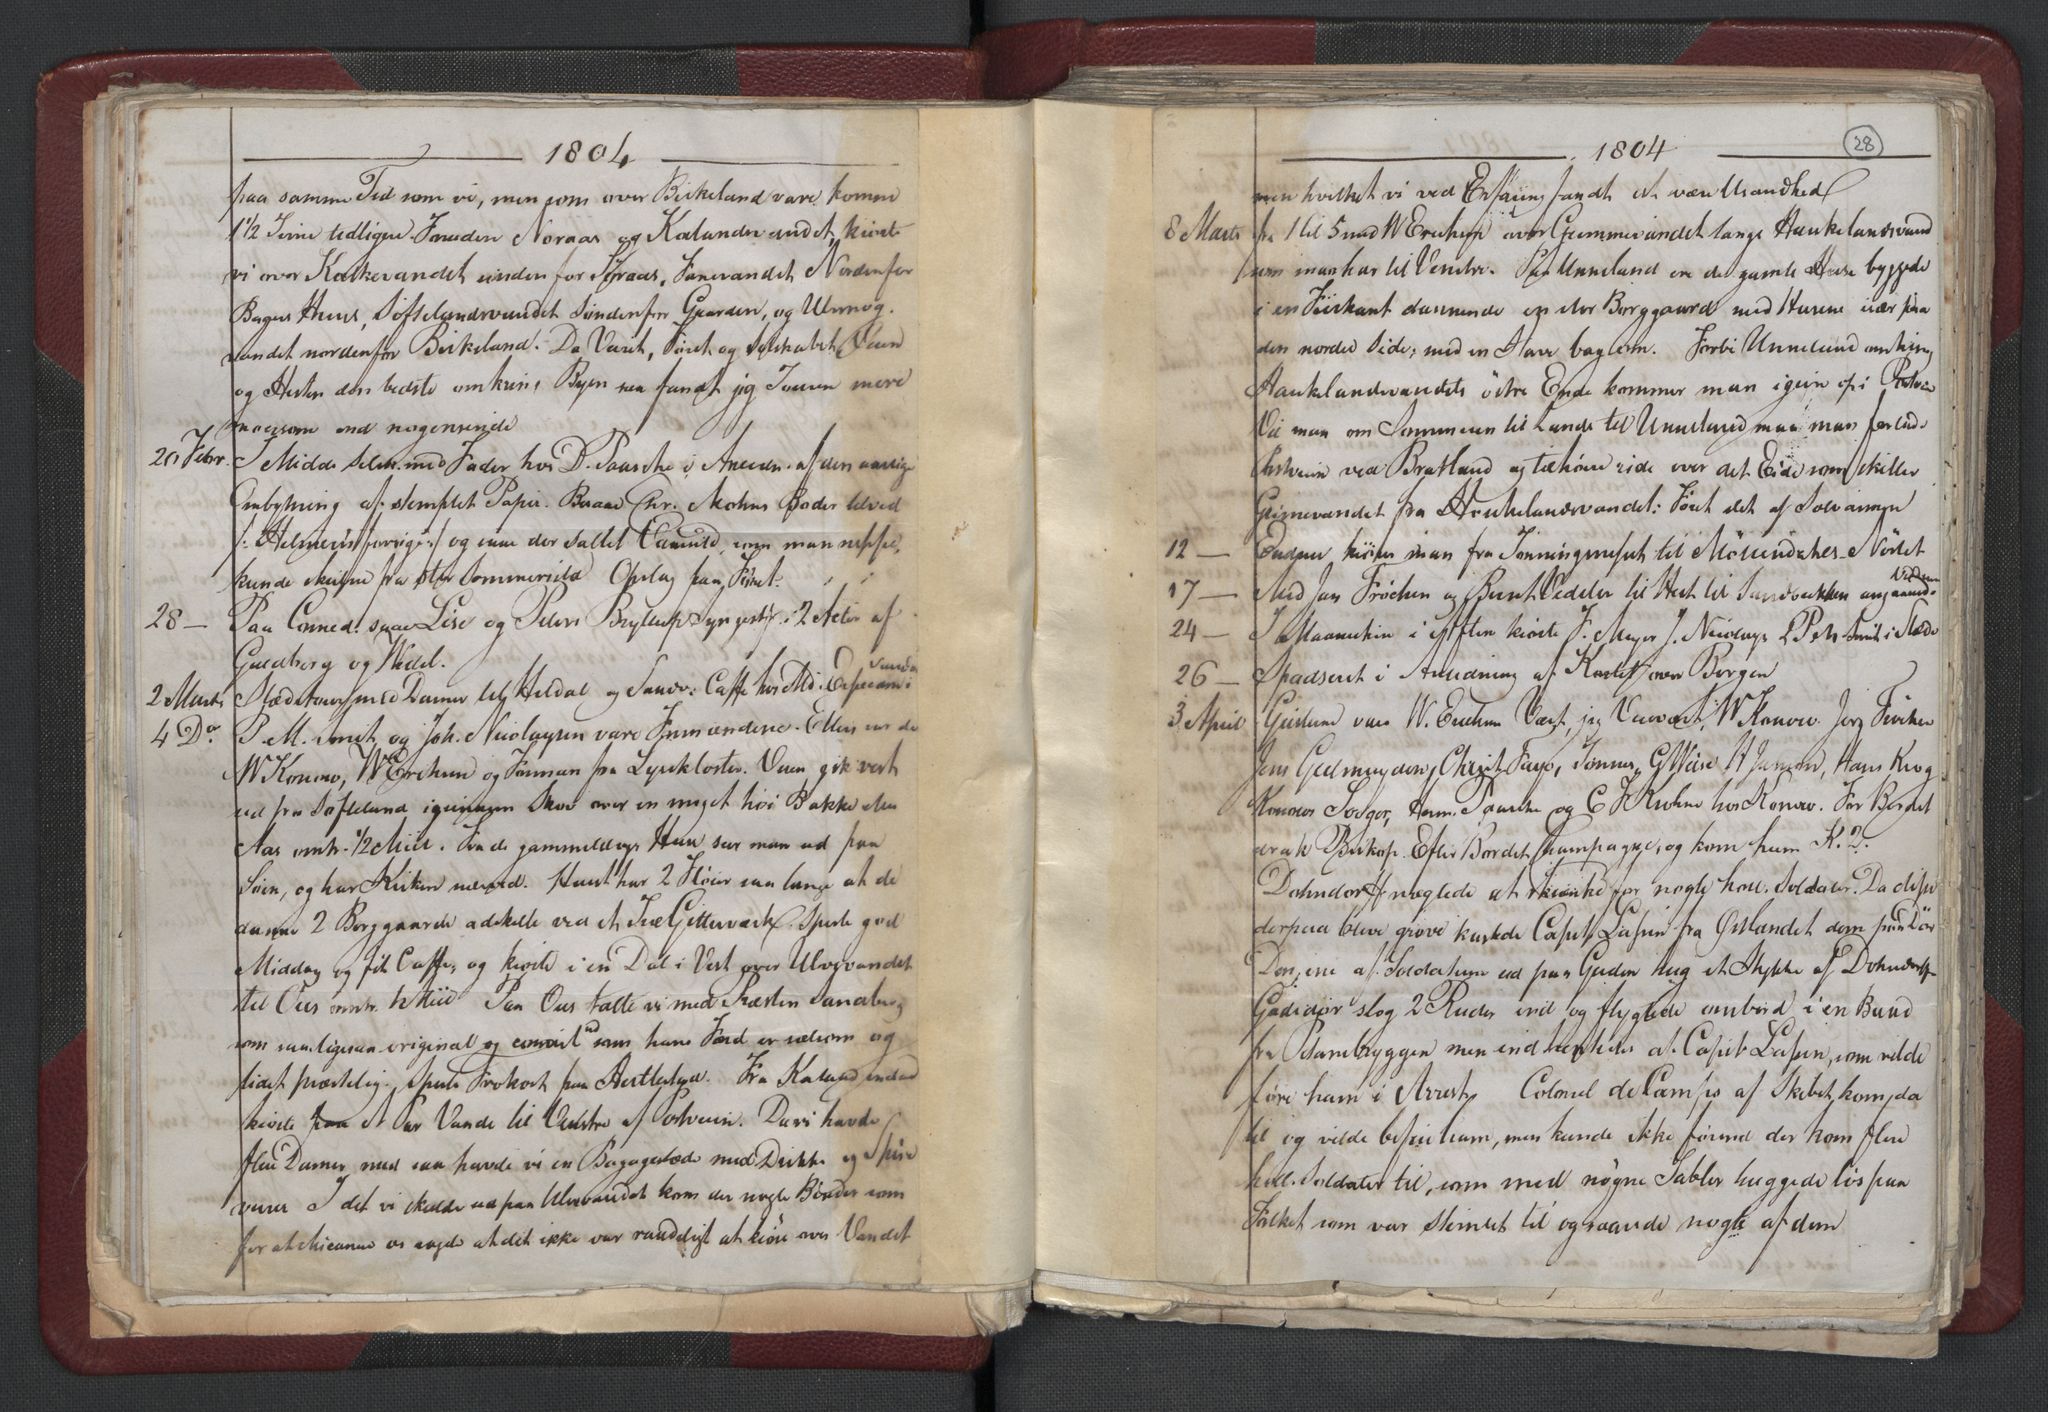 1804
paa samme Tid som vi, men som over Birkeland vare komne
1½ Time tidligere. Imellem Noraas og Kalandsvandet kiørte
vi over Kalkevandet nedenfor Søraas, Fanevandet Nordenfor
Bagers Huus, Søfhelandsvandet Søndenfor Gaarden, og Ulvvog-
vandet nordenfor Birkeland. Da Veiret, Føret og Selskabet, Veien
og Hesten den bedste omkring Byen saa fandt jeg Touren mere
morsom end nogensinde
20 Febr. I Midds Selsk. med Fader hos D. Paasche i Anledn. af den aarlige
Ombytning af stemplet Papir. Besaae Chr. Mohns Boder ved
/: Helmers forrige :/ og saae der saltet Vaarsild, som man neppe
kunde skielne fra stor Sommersild Oplag paa Fisk.
28 — Paa Comed. saae Lise og Peters Bryllup Syngest. i 2 Acter af
Guldberg og Wedel.
2 Marts Slædetour med Damer til Heldal og Sandv: Caffe hos Md.
4 Do P. M. Smit og Joh. Nicolaysen vare Formændene. Ellers var de
W Konow, W Erichsen og Formann fra Lysekloster. Veien gik vest
ud fra Søfteland igiennem Skov over en meget høi Bakke eller
Aas omtr. ½ Miil. Fra de gammeldags Huse saae man ud paa
Søen, og har Kirken nærved. Huset har 2 Fløier saa lange at de
danne 2 Borggaarde adskilte ved et Træ Gitterværk. Spiste god
Middag og fik Caffe, og kiørte i en Dal i Vest over Ulvevandet
til Ous omtr. ½ Miil Paa Ous talte vi med Præsten Sandberg
som saaligesaa original og comisk ud som hans Færd er sælsom og
lidet præstelig. Spiste Frokost paa Hestlestad. Fra Kaland indad
kiørte paa et Par Vande til Venstre af Postveien. Da vi havde
flere Damer med saa havde vi en Bagageslæde med Drikke og Spise
varer I det vi skulde ud paa Ulvevandet kom der nogle Bønder som
for at chicanere os sagde at det ikke var raadeligt at kiøre over Vandet
1804
28
men hvilket vi ved Erfaring fandt at være Usandhed
8 Marts fra 1 til 5 med W Erichsen over Grimmevandet langs Haukelandsvand
som man har til Venstre. Paa Unneland ere de gamle Huse byggede
i en Fiirkant dannende en stor Borggaard med Husene især paa
den nordre Side; med en Have bag om. Forbi Unneland omkring
Haukelandsvandets østre Ende kommer man igien op i Postveien
Vil man om Sommeren til Lands til Unneland maa man forlade
Postveien ved Bratland og tilhøire ride over det Eide som skiller
Grimevandet fra Haukelandsvandet: Føret det af Solvarmen
12 — Endnu kiører man fra Jonningsnæset til Møllendahls-Nøstet
17 — Med Jan Frøchen og Bernt Vedeler til Hest til Sandviken angaaende
24 — I Maaneskin i Aften kiørte F. Meyer J. Nicolays. L P M Smit i Slæde
26 — Spadseret i Anledning af Kortet over Bergen
3 April Giesterne vare W. Erichsen Vært, jeg Viivært, W Konow, Jørg Fischer
Jens Gulmeyden, Christ Faye, Tønnes, G Weise H Jansen, Hans Krog
Konows Svoger, Herm. Paasche og C F Krohn hos Konow. Før Bordet
drak Biskop. Efter Bordet Champagne, og kom hiem K. 2.
Dohndorff nægtede at skienke for nogle holl. Soldater. Da disse
derpaa bleve grove kastede Capit. Lassen fra Østlandet dem paa Dør
Den ene af Soldaterne ud paa Gaden hug et Stykke af Dohndorffs
Gadedør slog 2 Ruder ind og flygtede ombord i en Baad
fra Sandbryggen men indhentedes af Capit. Lassen, som vilde
føre ham i Arrest. Colonel de Camps af Skibet, kom da
til og vilde befrie ham, men kunde ikke førend der kom flere
holl. Soldater til, som med nøgne Sabler huggede løs paa
Folket som var stimlet til og saarede nogle af dem